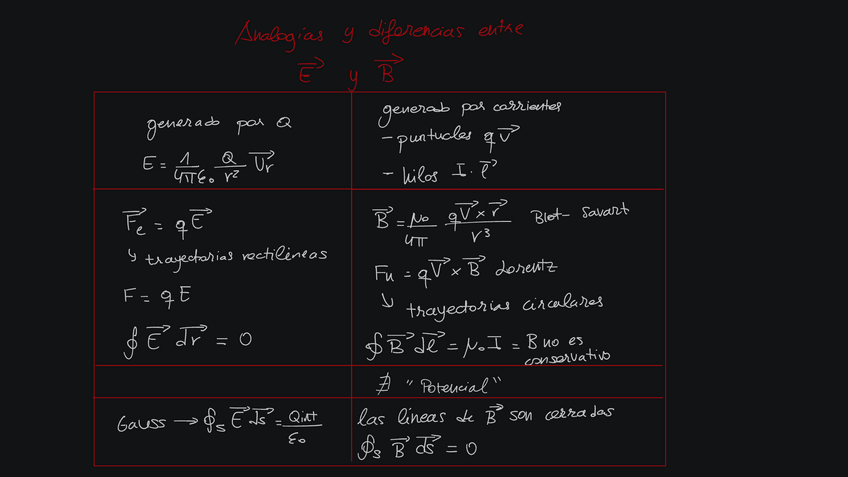 Analogías y diferencias entre
E⃗ y B⃗
generado por Q
E = 1/4πε₀ Q/r² U⃗r
generado por corrientes
- puntuales qv⃗
- hilos I · l⃗
F⃗e = qE⃗
↳ trayectorias rectilíneas
F = qE
∮ E⃗ dr⃗ = 0
B⃗ = μ₀/4π qV⃗ × r⃗/r³ Biot-Savart
Fu = qV⃗ × B⃗ Lorentz
↳ trayectorias circulares
∮ B⃗ dl⃗ = μ₀ I = B no es
conservativo
∄ "Potencial"
Gauss → ∮s E⃗ ds⃗ = Qint/ε₀
las líneas de B⃗ son cerradas
∮s B⃗ ds⃗ = 0